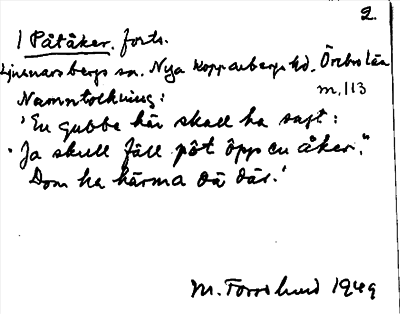 2.
1 Påtåker, forts.
Ljusnarsbergs sn. Nya Kopparbergs hd. Örebro län
m. 113
Namntolkning:
'En gubbe här skall ha sagt:
"Ja skull fäll pôt ôpp en åker."
Dom ha härma dä där.'
M. Forslund 1949